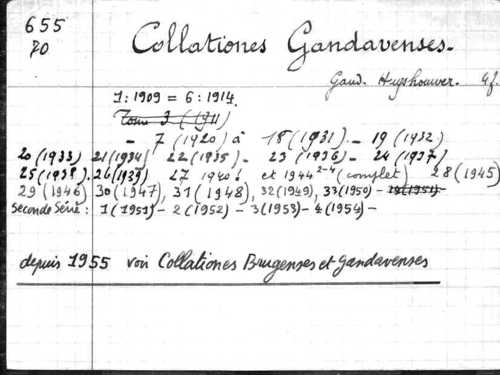 655
70
Collationes Gandavenses.
Gand. Huyshouwer. Gf.
1: 1909 = 6: 1914.
Tome 3 (1911)
- 7 (1920) à 18 (1931) - 19 (1932)
20 (1933) 21 (1934) 22 (1935) - 23 (1936) - 24 (1937)
25 (1938). 26 (1939) 27 1940 et 1944 2-4 (complet) 28 (1945)
29 (1946) 30 (1947), 31 (1948), 32 (1949), 33 (1950) - 34 (1951) -
Seconde Série: 1 (1951) - 2 (1952) - 3 (1953) - 4 (1954) -
depuis 1955 voir Collationes Brugenses et Gandavenses